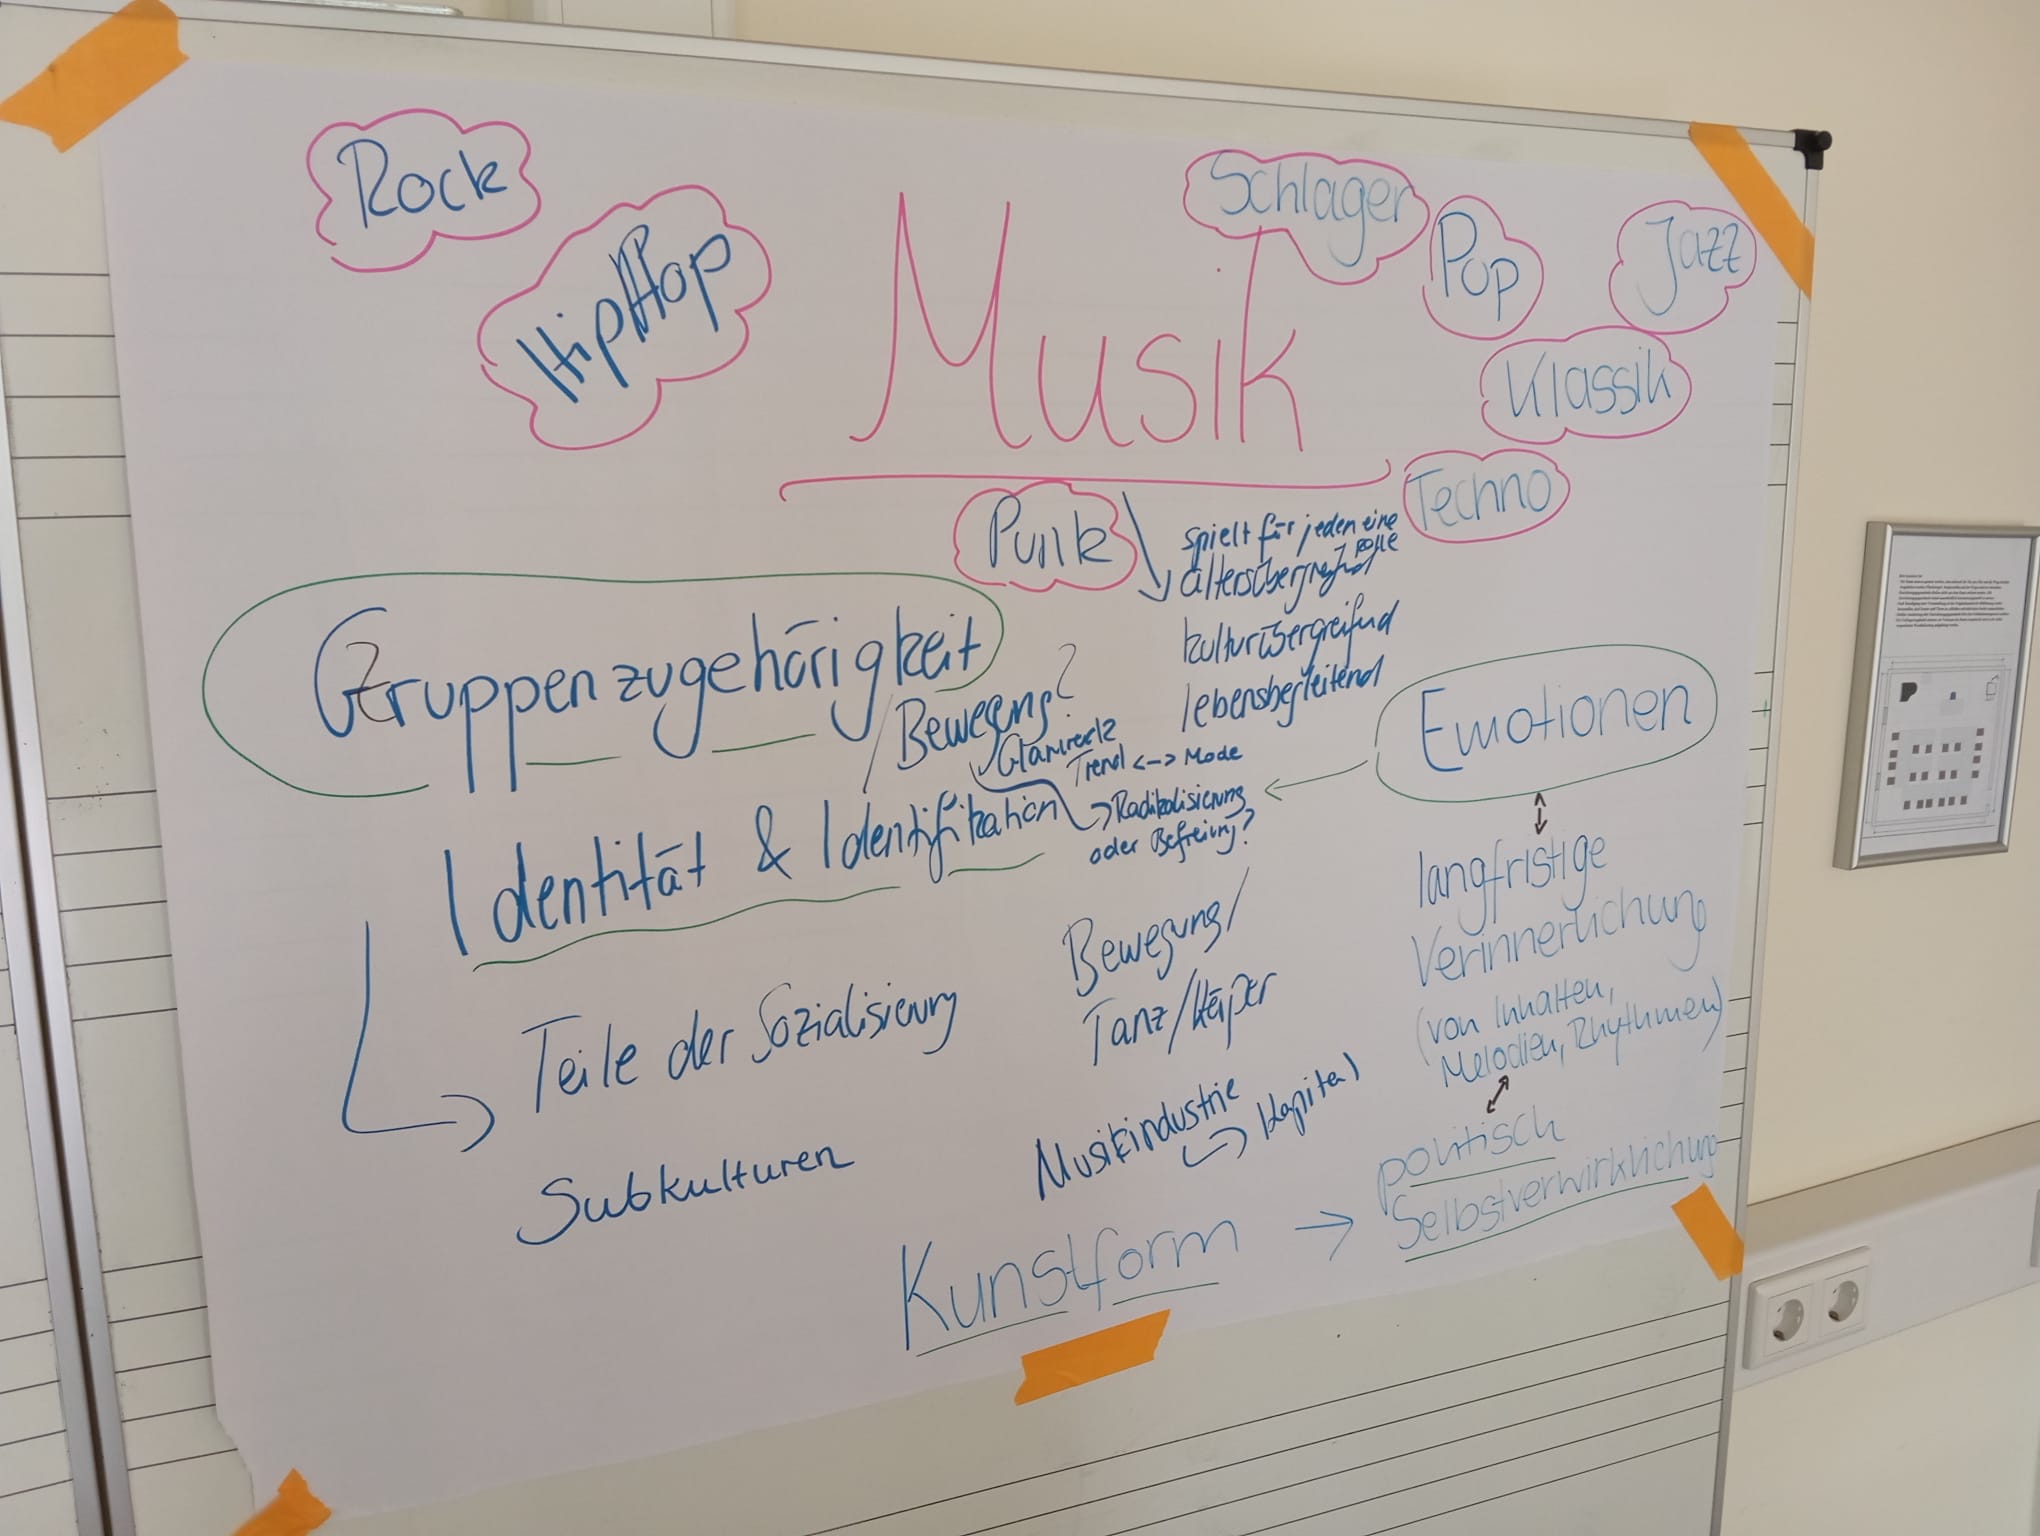 Rock
HipHop
Musik
Schlager
Pop
Jazz
Klassik
Techno
Punk
spielt für jeden eine
Rolle
altersübergreifend
kulturübergreifend
lebensbegleitend
Gruppenzugehörigkeit
Bewegung?
Glamrock
Trend <--> Mode
Radikalisierung
oder Befreiung?
Identität & Identifikation
Emotionen
langfristige
Verinnerlichung
(von Inhalten,
Melodien, Rhythmen)
politisch
Selbstverwirklichung
Teile der Sozialisierung
Subkulturen
Bewegung/
Tanz/Körper
Musikindustrie
Kapital
Kunstform →